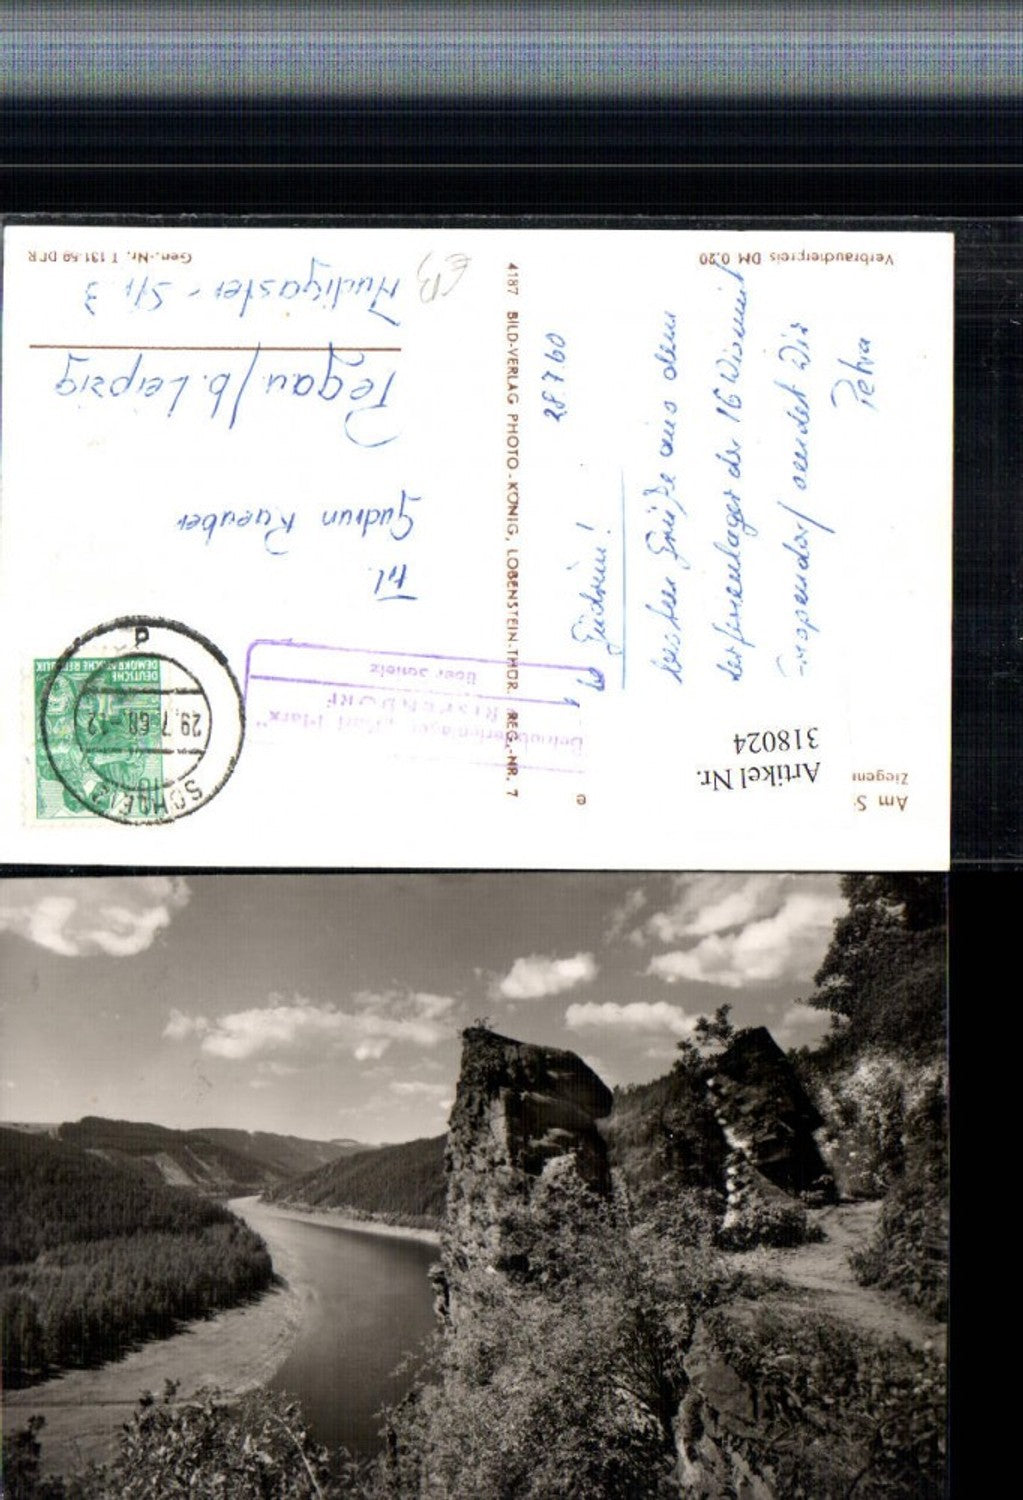 Am S
Ziegenr
Artikel Nr.
318024
e
Gudrun!
besten Grüße aus dem
der 16 Wismut
sendet Dir
Petra
28.7.60
Verbraucherpreis DM 0.20
4187 BILD-VERLAG PHOTO-KÖNIG, LOBENSTEIN-THÜR. REG.-NR. 7
Betriebsferienlager „Karl Marx"
RISPENDORF
über Schleiz
SCHLEIZ
29.7.60.-12
P
DEUTSCHE
DEMOKRATISCHE REPUBLIK
10
Frl.
Gudrun Raeuber
Pegau / b. Leipzig
Str. 3
Gen.-Nr. T 131-59 DDR